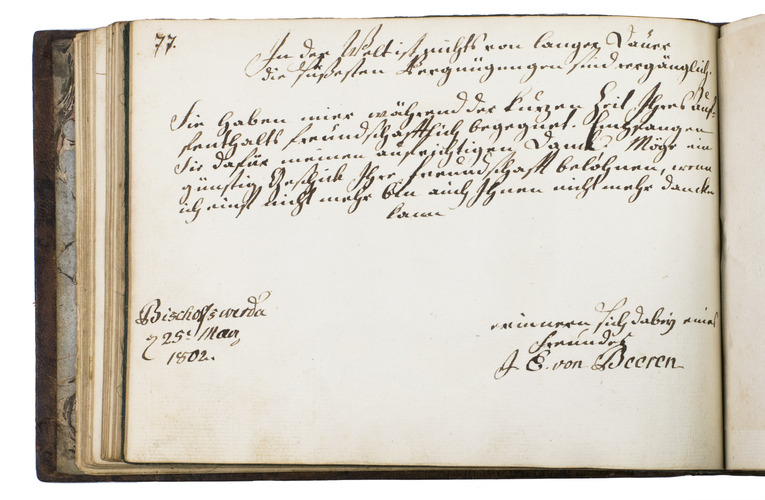 77.
In der Welt ist nichts von langer Dauer
die süßesten Vergnügungen sind vergänglich.
Sie haben mir während der kurzen Zeit Ihres Auf-
fenthalts freundschafftlich begegnet. Empfangen
Sie dafür meinen aufrichtigen Danck. Möge ein
günstig Geschick Ihre Freundschafft belohnen, wenn
ich einst nicht mehr bin auch Ihnen nicht mehr dancken
kann
Bischoffswerda
25t May
1802.
erinnern Sich dabey eines
Freundes
J E. von Beeren